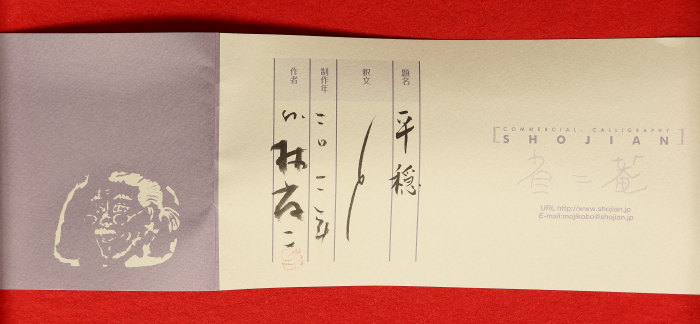 題名
平穏
釈文
制作年
二〇一二年
作者
COMMERCIAL. CALLIGRAPHY
SHOJIAN
URL http://www.shojian.jp
E-mail:mojikobo@shojian.jp